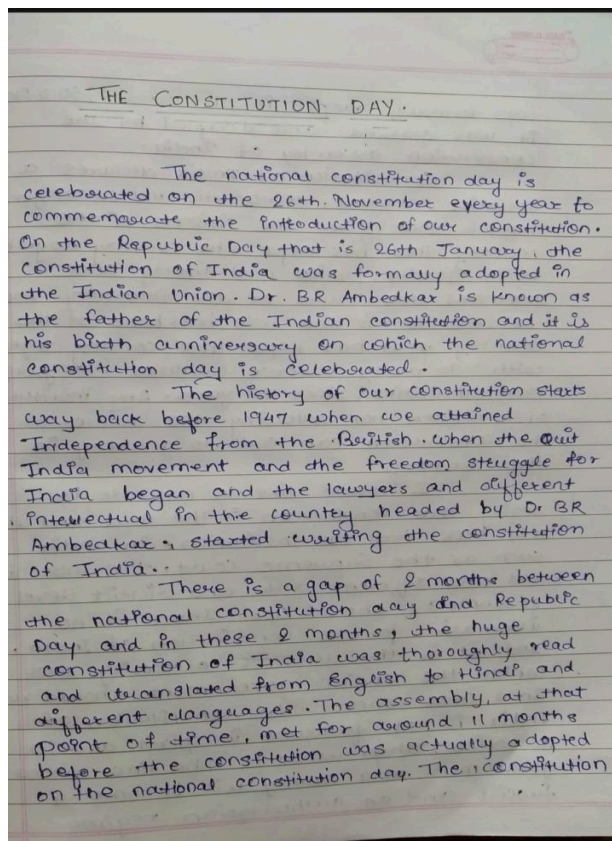 THE CONSTITUTION DAY.
The national constitution day is
celebrated on the 26th. November every year to
commemorate the introduction of our constitution.
On the Republic Day that is 26th January, the
constitution of India was formally adopted in
the Indian Union. Dr. BR Ambedkar is known as
the father of the Indian constitution and it is
his birth anniversary on which the national
constitution day is celebrated.
The history of our constitution starts
way back before 1947 when we attained
Independence from the British. when the Quit
India movement and the freedom struggle for
India began and the lawyers and different
intellectual in the country headed by Dr BR
Ambedkar, started writing the constitution
of India..
There is a gap of 2 months between
the national constitution day and Republic
Day and in these 2 months, the huge
constitution of India was thoroughly read
and translated from English to Hindi and
different languages. The assembly, at that
point of time, met for around 11 months
before the constitution was actually adopted
on the national constitution day. The constitution